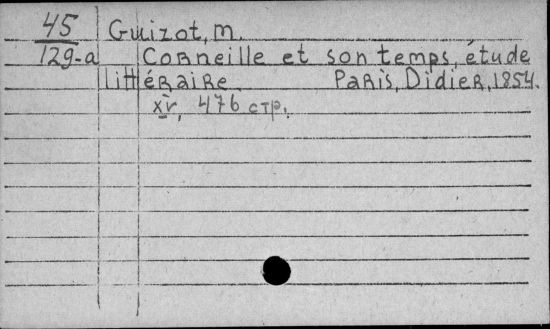 45 Guizot, M.
129-a Corneille et son temps, étude
littéraire. Paris, Didier, 1854.
xv, 476 стр.